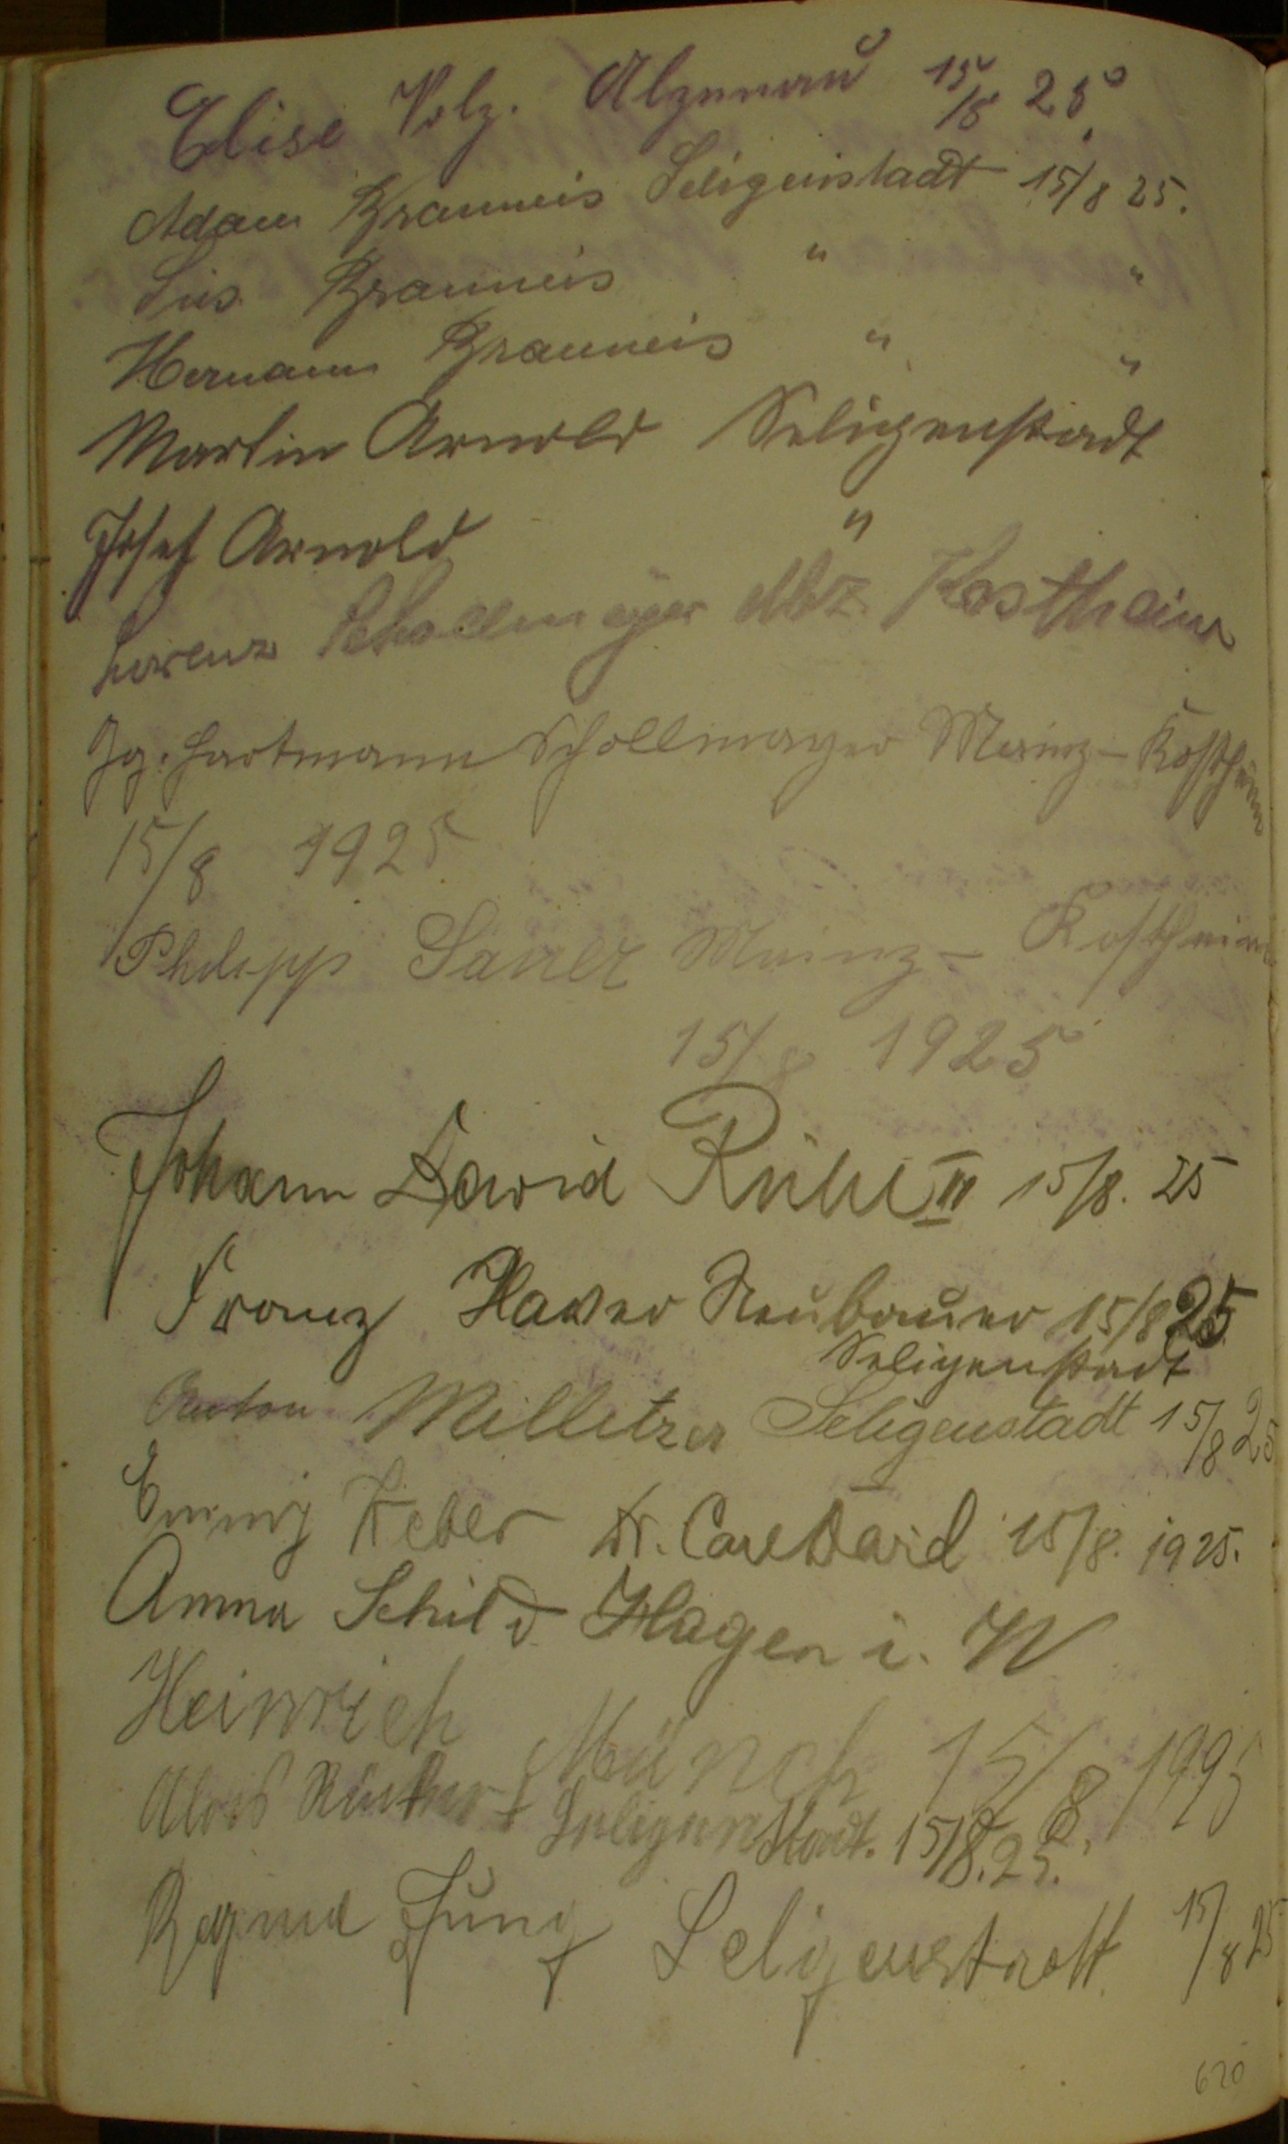 Elise Volz. Alzenau 15/8 25.
Adam Brauneis Seligenstadt 15/8 25.
Lis Brauneis " "
Hermann Brauneis " "
Martin Arnold Seligenstadt
Josef Arnold "
Lorenz Schollmayer Mz. Kostheim
Gg. Hartmann Schollmayer Mainz-Kostheim
15/8 1925
Philipp Mainz-Kostheim
15/8 1925
Johann David Rühl II 15/8. 25
Franz Xaver Neubauer 15/8 25
Seligenstadt
Anton Milletzer Seligenstadt 15/8 25
Emmy 15/8. 1925.
Anna Schild Hagen i. W
Heinrich Münch 15/8. 1925
Alois Seligenstadt. 15/8. 25.
Jung Seligenstadt 15/8 25
620